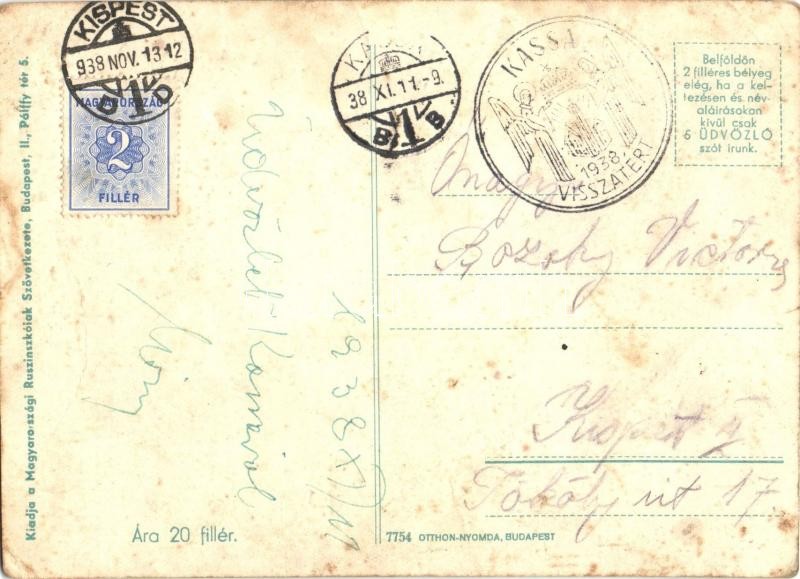 KISPEST
938 NOV. 13 12
MAGYARORSZÁG
2
FILLÉR
38 XI. 11.-9.
1 B
B
KASSA
1938
VISSZATÉRT
Belföldön
2 filléres bélyeg
elég, ha a kel-
tezésen és név-
aláirásokon
kivül csak
5 ÜDVÖZLŐ
szót irunk.
Kiadja a Magyarországi Ruszinszkóiak Szövetkezete, Budapest, II., Pálffy tér 5.
Üdvözlet Kassáról
1938 XI/11
Nagys
Bozóky Victor
Kispest
Tököly út 17
Ára 20 fillér.
7754 OTTHON-NYOMDA, BUDAPEST